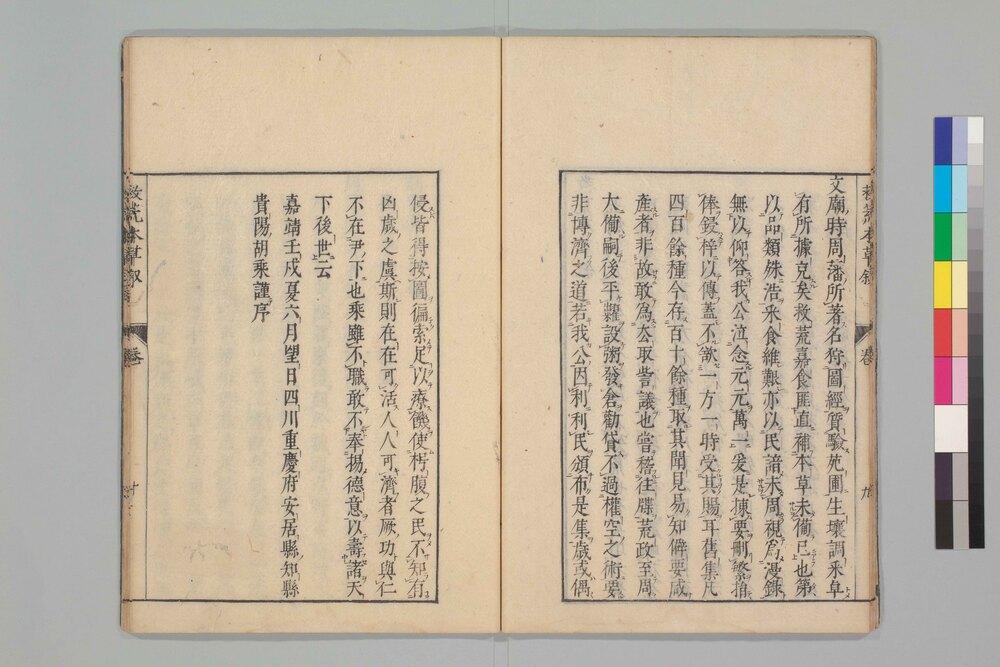 文廟時周藩所著名狩圖經質驗苑圃生壤調釆阜
有所據克矣救荒嘉食匪直補本草未俻已也第
以品類殊浩釆食維艱亦以民諳未周視爲漫錄
無以仰答我公泣念元元萬一爰是揀要刪繁捐
俸鋟梓以傳蓋不欲一方一時受其賜耳舊集凡
四百餘種今存百十餘種取其聞見易知僻要咸
產者非故敢爲去取訾議也嘗稽往牒荒政至周
大俻嗣後平糶設粥發倉勸貸不過權空之術要
非博濟之道若我公因利利民頒布是集歲或偶
救荒本草叙 卷 九
侵皆得按圖偏索足以療饑使枵腹之民不知有
凶歲之虞斯則在在可活人人可濟者厥功與仁
不在尹下也乘雖不職敢不奉揚德意以壽諸天
下後世云
嘉靖壬戌夏六月望日四川重慶府安居縣知縣
貴陽胡乘謹序
救荒本草叙 卷 十